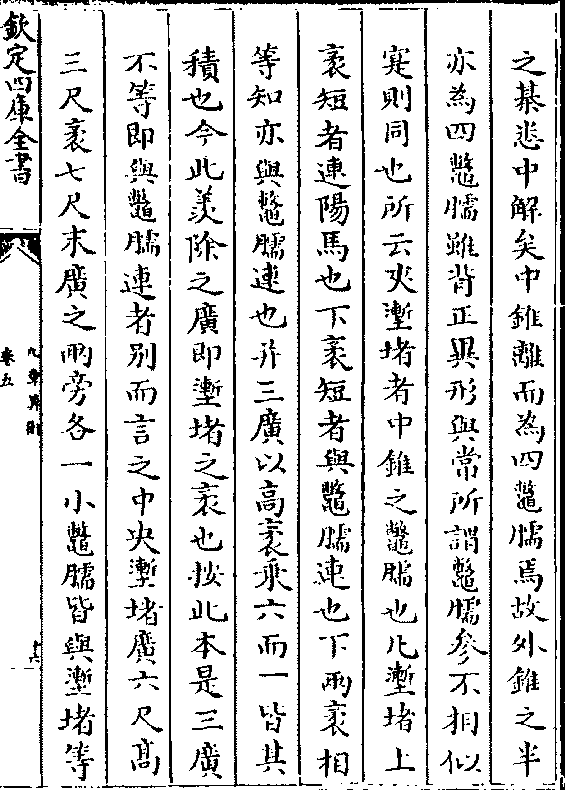 之棊悲中解矣中錐離而為四鼈臑焉故外錐之半
亦為四鼈臑雖背正異形與常所謂鼈臑參不相似
寔則同也所云夾塹堵者中錐之鼈臑也凡塹堵上
袤短者連陽馬也下袤短者與鼈臑連也下兩袤相
等知亦與鼈臑連也并三廣以高袤乘六而一皆其
積也今此羨除之廣即塹堵之袤也按此本是三廣
不等即與鼈臑連者別而言之中央塹堵廣六尺高
三尺袤七尺末廣之兩旁各一小鼈臑皆與塹堵等
欽定四庫全書
九章算術
卷五